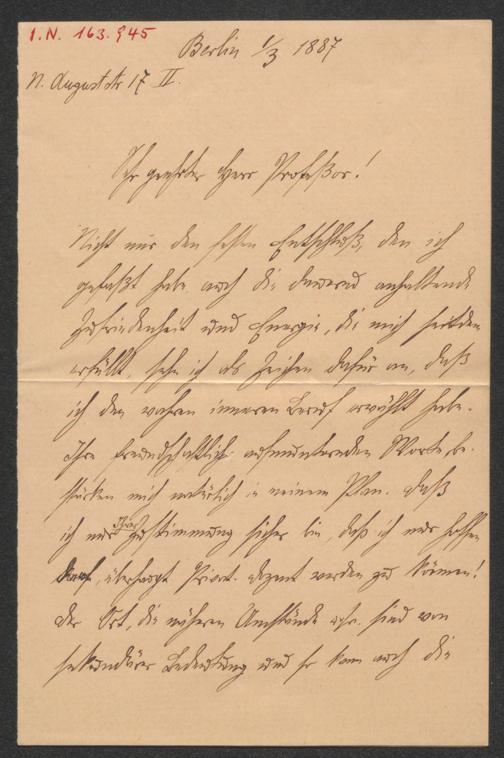 I.N. 163.945
Berlin 1/3 1887
N. Auguststr 17 II.
Sehr geehrter Herr Professor!
Nicht nur den festen Entschluß, den ich
gefaßt habe, auch die dauernd anhaltende
Zufriedenheit und Energie, die mich seitdem
erfüllt, sehe ich als Zeichen dafür an, daß
ich den wahren inneren Beruf erwählt habe.
Ihre freundschaftlich aufmunternden Worte be-
stärken mich natürlich in meinem Plan. Daß
ich nur Ihrer Zustimmung sicher bin, daß ich nur hoffen
darf, überhaupt Privat-dozent werden zu können!
Der Ort, die näheren Umstände sind von
sekundärer Bedeutung und so kann auch die